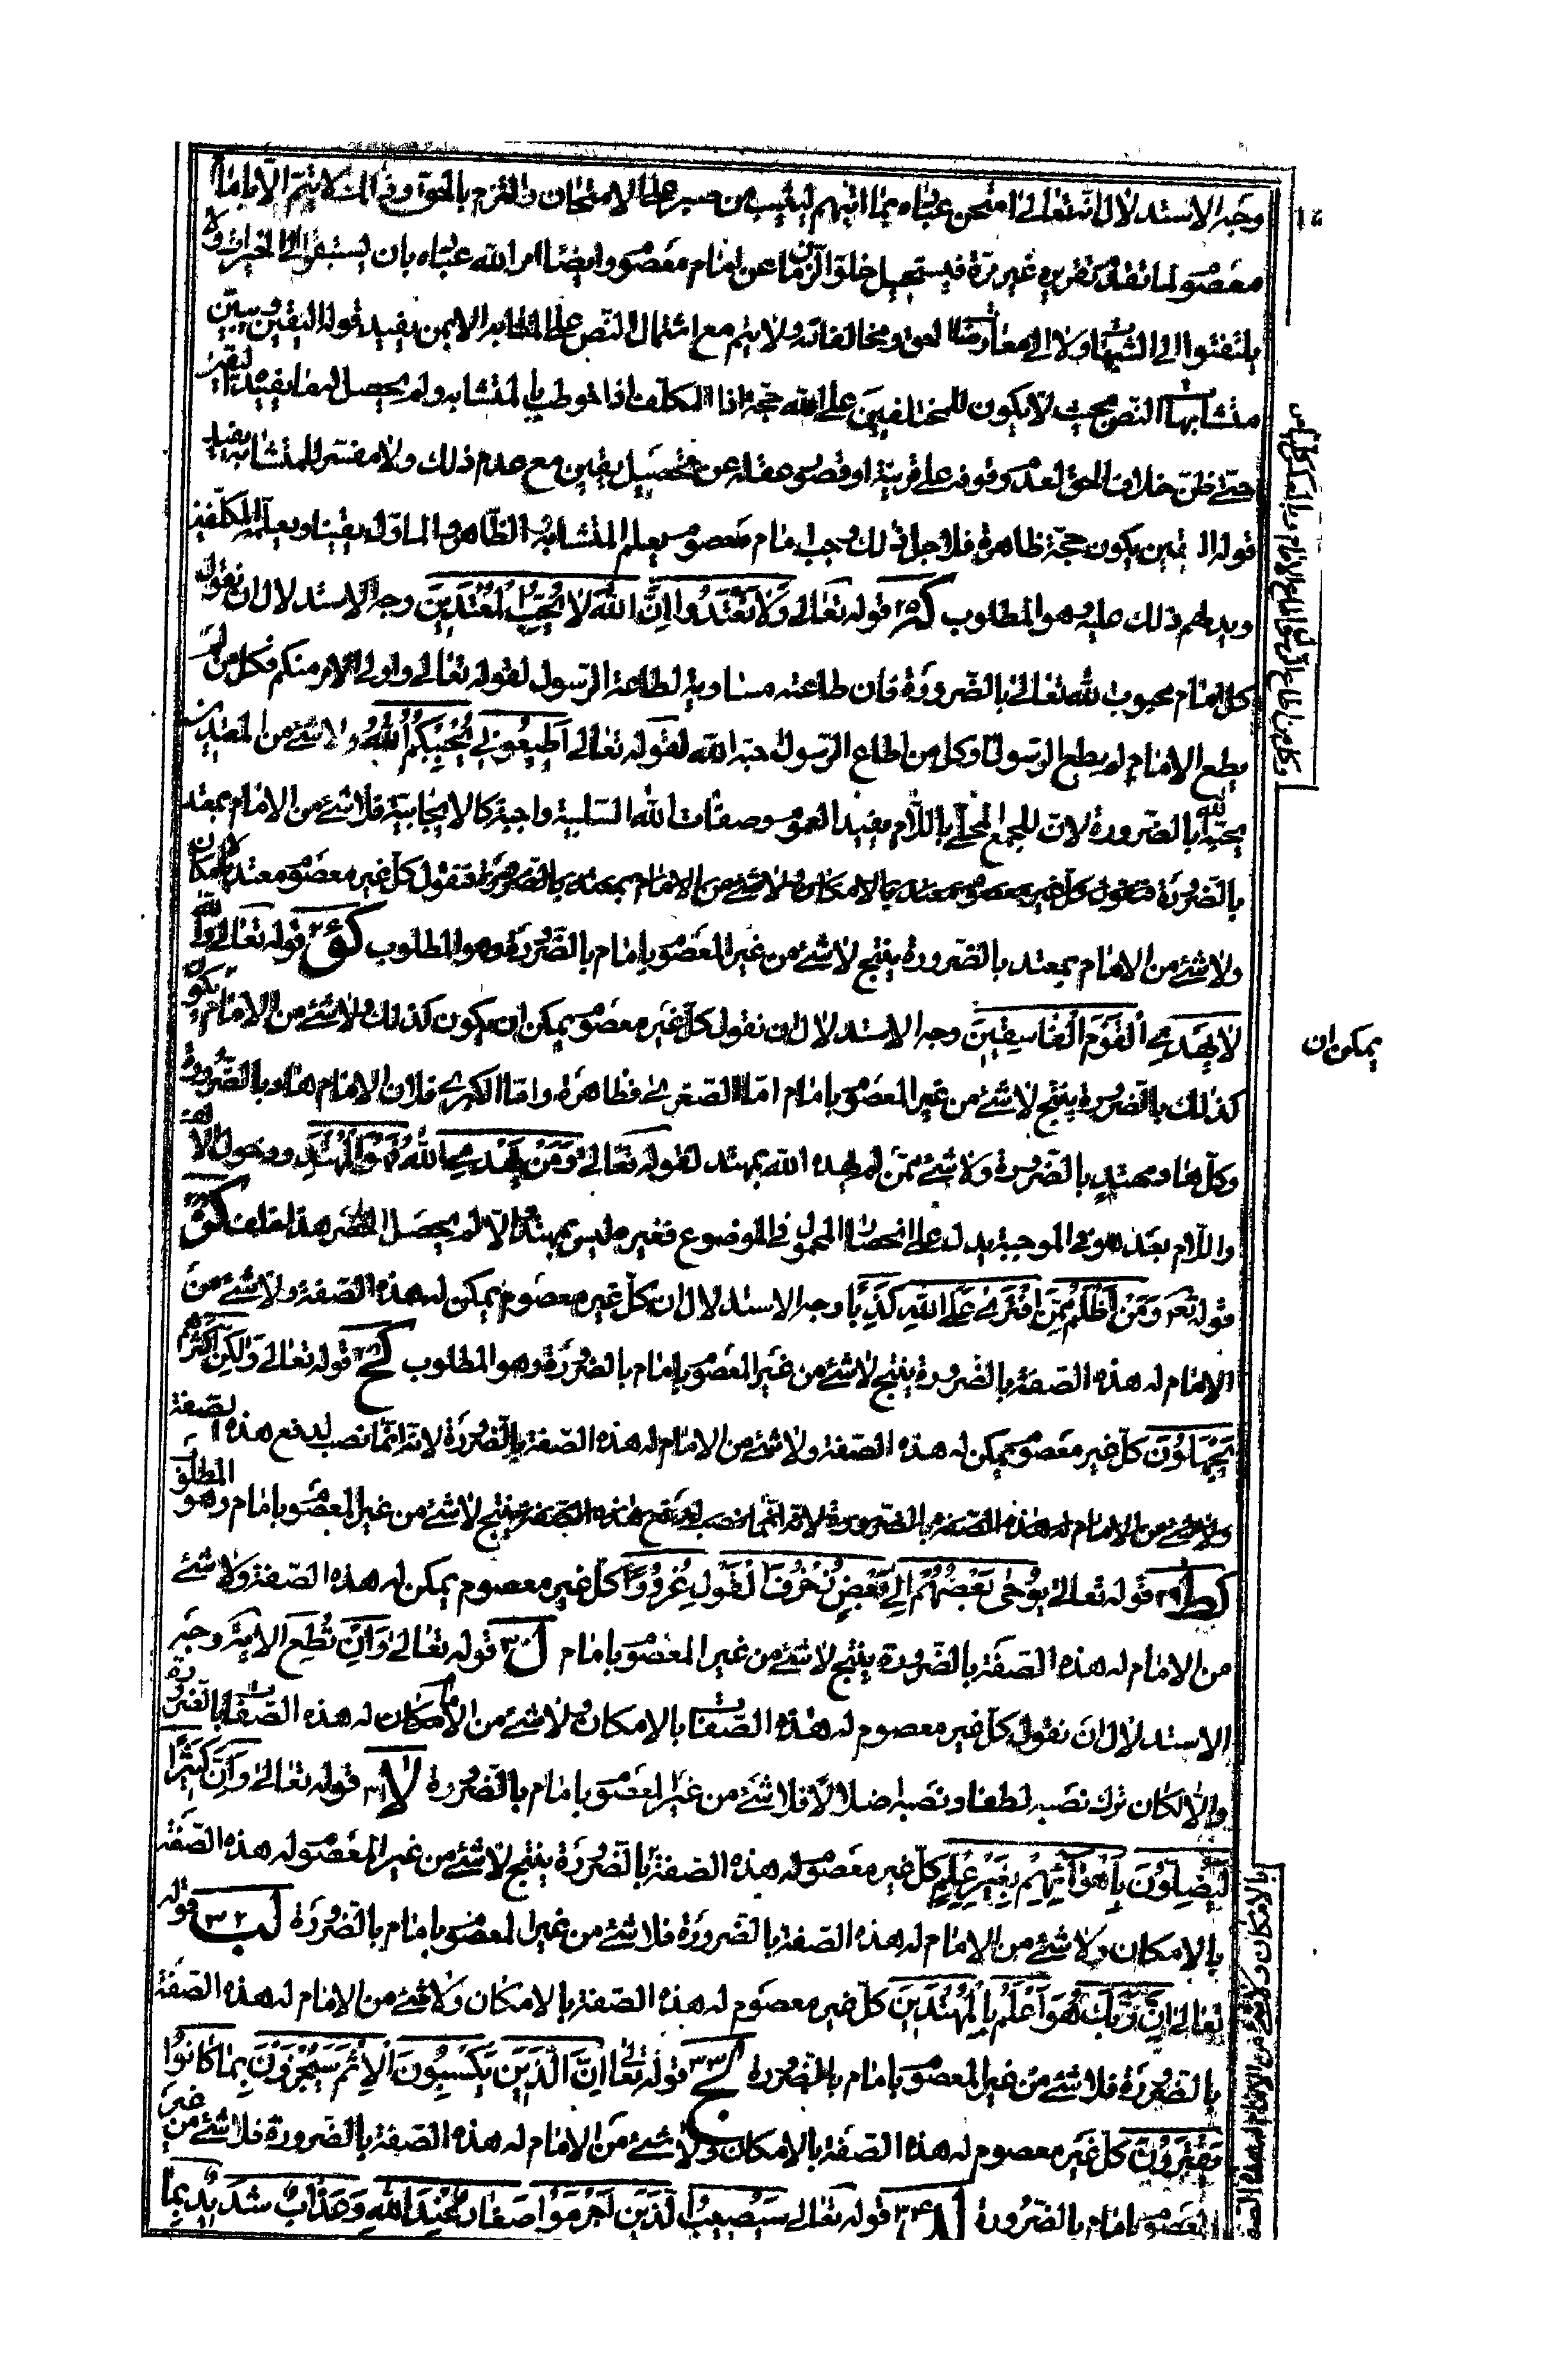 وجه الاستدلال انه تعالى امتحن عباده بما اتيهم ليثيب من صبر على الامتحان والتزم بالحق وذلك لا يتم الا بامام
معصوم لما تقدم تقريره غير مرة فيستحيل خلو الزمان عن امام معصوم وايضا امر الله عباده بان يستبقوا الى الخيرات ولا
يلتفتوا الى الشبهات ولا الى معارضات الحق ومخالفاته ولا يتم مع اشتمال النص على المتشابه الا بمن يفيد قوله اليقين ويبين
متشابهات النص بحيث لا يكون للمختلفين على الله حجة اذ المكلف اذا خوطب بالمتشابه ولم يحصل له ما يفيده اليقين
حتى ظن خلاف الحق لعدم وقوفه على قرينة او قصور عقله عن تحصيل يقين مع عدم ذلك ولا مفسر للمتشابه يفيد
قوله اليقين يكون حجة ظاهرة فلاجل ذلك وجب امام معصوم يعلم المتشابه والظاهر والماول يقينا ويعلم المكلفين
ويدلهم ذلك عليه وهو المطلوب كه ٢٥ قوله تعالى وَلَا تَعْتَدُوا اِنَّ اللهَ لَا يُحِبُّ الْمُعْتَدِينَ وجه الاستدلال ان نقول
كل امام محبوب لله تعالى بالضرورة فان طاعته مساوية لطاعة الرسول لقوله تعالى واولى الامر منكم فكل من لم
يطع الامام لم يطع الرسول وكل من اطاع الرسول حبه الله لقوله تعالى اَطِيعُونِى يُحْبِبْكُمُ اللهُ ولا شئ من المعتدين
يحبه الله بالضرورة لان الجمع المحلى باللام يفيد العموم وصفات الله السلبية واجبة كالايجابية فلا شئ من الامام بمعتد
بالضرورة فنقول كل غير معصوم معتد بالامكان ولا شئ من الامام بمعتد بالضرورة فنقول كل غير معصوم معتد بالامكان
ولا شئ من الامام بمعتد بالضرورة ينتج لا شئ من غير المعصوم بامام بالضرورة وهو المطلوب كو ٢٦ قوله تعالى وَاللهُ
لَا يَهْدِى الْقَوْمَ الْفَاسِقِينَ وجه الاستدلال ان نقول كل غير معصوم يمكن ان يكون كذلك ولا شئ من الامام يكون
كذلك بالضرورة ينتج لا شئ من غير المعصوم بامام اما الصغرى فظاهرة واما الكبرى فلان الامام هاد بالضرورة
وكل هاد مهتد بالضرورة ولا شئ ممن لم يهده الله بمهتد لقوله تعالى وَمَنْ يَهْدِى اللهُ فَهُوَ الْمُهْتَدِ ودخول الالف
واللام بعد هو فى الموجبة يدل على انحصار المحمول فى الموضوع فغيره ليس بمهتد والا لم يحصل الحصر هذا خلف كز
قوله تعر وَمَنْ اَظْلَمُ مِمَّنِ افْتَرٰى عَلَى اللهِ كَذِبًا وجه الاستدلال ان كل غير معصوم يمكن له هذه الصفة ولا شئ من
الامام له هذه الصفة بالضرورة ينتج لا شئ من غير المعصوم بامام بالضرورة وهو المطلوب كح قوله تعالى وَلٰكِنَّ اَكْثَرَهُمْ
يَجْهَلُونَ كل غير معصوم يمكن له هذه الصفة ولا شئ من الامام له هذه الصفة بالضرورة لانه انما نصب لدفع هذه الصفة
ولا شئ من الامام له هذه الصفة بالضرورة لانه انما نصب لدفع هذه الصفة ينتج لا شئ من غير المعصوم بامام وهو المطلوب
كط ٢٩ قوله تعالى يُوحِى بَعْضُهُمْ اِلٰى بَعْضٍ زُخْرُفَ الْقَوْلِ غُرُورًا كل غير معصوم يمكن له هذه الصفة ولا شئ
من الامام له هذه الصفة بالضرورة ينتج لا شئ من غير المعصوم بامام ل ٣٠ قوله تعالى وَاِنْ تُطِعْ الاية وجه
الاستدلال ان نقول كل غير معصوم له هذه الصفات بالامكان ولا شئ من الامام له هذه الصفات بالضرورة
والا لكان ترك نصبه لطفا ونصبه ضلالا فلا شئ من غير المعصوم بامام بالضرورة لا ٣١ قوله تعالى وَاِنَّ كَثِيرًا
لَيُضِلُّونَ بِاَهْوَآئِهِمْ بِغَيْرِ عِلْمٍ كل غير معصوم له هذه الصفة بالضرورة ينتج لا شئ من غير المعصوم له هذه الصفة
بالامكان ولا شئ من الامام له هذه الصفة بالضرورة فلا شئ من غير المعصوم بامام بالضرورة لب ٣٢ قوله
تعالى اِنَّ رَبَّكَ هُوَ اَعْلَمُ بِالْمُهْتَدِينَ كل غير معصوم له هذه الصفة بالامكان ولا شئ من الامام له هذه الصفة
بالضرورة فلا شئ من غير المعصوم بامام بالضرورة لج ٣٣ قوله تعالى اِنَّ الَّذِينَ يَكْسِبُونَ الْاِثْمَ سَيُجْزَوْنَ بِمَا كَانُوا
يَقْتَرِفُونَ كل غير معصوم له هذه الصفة بالامكان ولا شئ من الامام له هذه الصفة بالضرورة فلا شئ من غير
المعصوم بامام بالضرورة لد ٣٤ قوله تعالى سَيُصِيبُ الَّذِينَ اَجْرَمُوا صَغَارٌ عِنْدَ اللهِ وَعَذَابٌ شَدِيدٌ بِمَا
يمكن ان